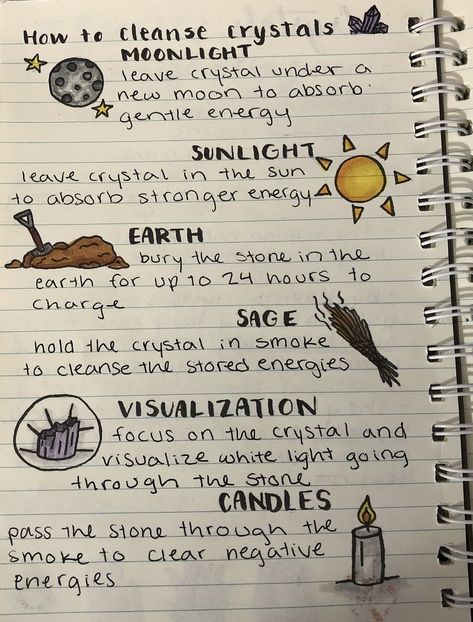 How to cleanse crystals
MOONLIGHT
leave crystal under a
new moon to absorb
gentle energy
SUNLIGHT
leave crystal in the sun
to absorb stronger energy
EARTH
bury the stone in the
earth for up to 24 hours to
charge
SAGE
hold the crystal in smoke
to cleanse the stored energies
VISUALIZATION
focus on the crystal and
visualize white light going
through the stone
CANDLES
pass the stone through the
smoke to clear negative
energies